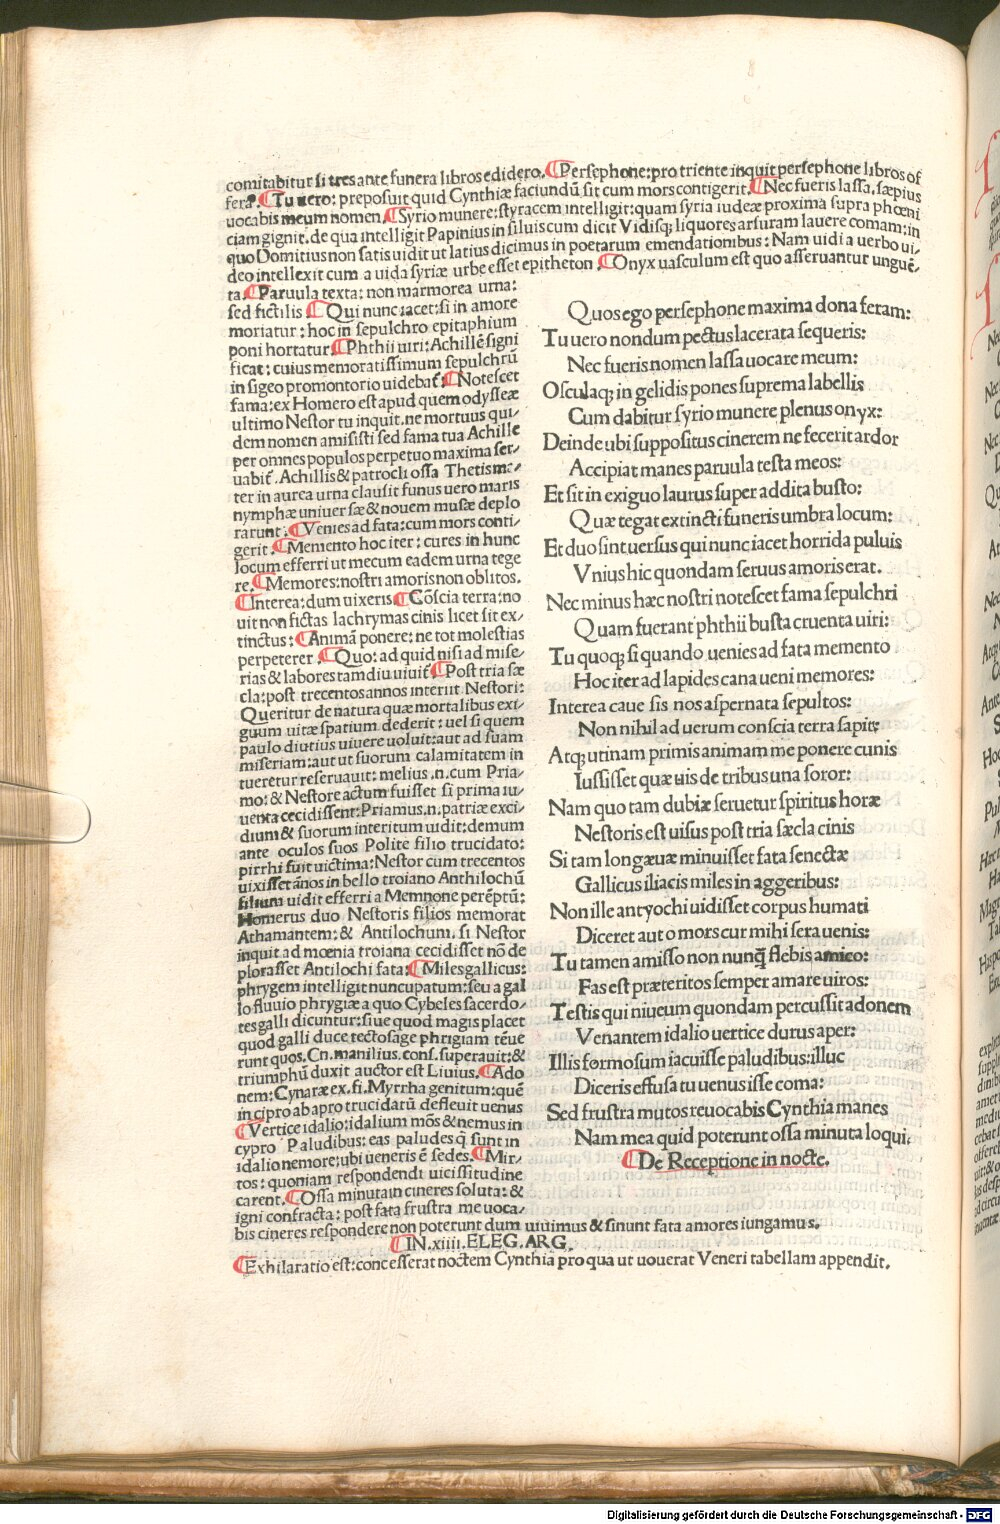 comitabitur si tres ante funera libros edidero. ¶Persephone: pro triente inquit persephone libros of
feret. ¶Tu uero: preposuit quid Cynthiæ faciundū sit cum mors contigerit. ¶Nec fueris lassa, sæpius
uocabis meum nomen. ¶Syrio munere: styracem intelligit: quam syria iudeæ proxima supra phœni
ciam gignit. de qua intelligit Papinius in siluis cum dicit Vidisq; liquores arsuram lauere comam: in
quo Domitius non satis uidit ut latius dicimus in poetarum emendationibus: Nam uidi a uerbo ui/
deo intellexit cum a uida syriæ urbe esset epitheton. ¶Onyx uasculum est quo asseruantur unguē/
ta. ¶Paruula texta: non marmorea urna:
sed fictilis ¶Qui nunc iacet: si in amore
moriatur: hoc in sepulchro epitaphium
poni hortatur. ¶Phthii uiri: Achillē signi
ficat: cuius memoratissimum sepulchrū
in sigeo promontorio uidebat̄. ¶Notescet
fama: ex Homero est apud quem odysseæ
ultimo Nestor tu inquit. ne mortuus qui/
dem nomen amisisti sed fama tua Achille
per omnes populos perpetuo maxima ser/
uabit̄. Achillis & patrocli ossa Thetis ma/
ter in aurea urna clausit funus uero maris
nymphæ uniuersæ & nouem musæ deplo
rarunt. ¶Venies ad fata: cum mors conti/
gerit. ¶Memento hoc iter: cures in hunc
locum efferri ut mecum eadem urna tege
re. ¶Memores: nostri amoris non oblitos.
¶Interea: dum uixeris ¶Cōscia terra: no
uit non fictas lachrymas cinis licet sit ex/
tinctus: ¶Animā ponere: ne tot molestias
perpeterer. ¶Quo: ad quid nisi ad mise/
rias & labores tam diu uiuit̄ ¶Post tria sæ
cla: post trecentos annos interiit Nestori:
Queritur de natura quæ mortalibus exi/
guum uitæ spatium dederit: uel si quem
paulo diutius uiuere uoluit: aut ad suam
miseriam: aut ut suorum calamitatem in
tueretur reseruauit: melius .n. cum Pria/
mo: & Nestore actum fuisset si prima iu/
uenta cecidissent: Priamus .n. patriæ exci/
dium & suorum interitum uidit: demum
ante oculos suos Polite filio trucidato:
pirrhi fuit uictima: Nestor cum trecentos
uixisset ānos in bello troiano Anthilochū
filium uidit efferri a Memnone perēptū:
Homerus duo Nestoris filios memorat
Athamantem: & Antilochum. si Nestor
inquit ad mœnia troiana cecidisset nō de
plorasset Antilochi fata: ¶Miles gallicus:
phrygem intelligit nuncupatum: seu a gal
lo fluuio phrygiæ a quo Cybeles sacerdo/
tes galli dicuntur: siue quod magis placet
quod galli duce tectosage phrigiam tēue
runt quos. Cn. manilius. cons. superauit: &
triumphū duxit auctor est Liuius. ¶Ado
nem: Cynaræ ex. fi. Myrrha genitum: quē
in cipro ab apro trucidatū defleuit uenus
¶Vertice idalio: idalium mōs & nemus in
cypro Paludibus: eas paludes q̄ sunt in
idalio nemore: ubi ueneris ē sedes. ¶Mir/
tos: quoniam respondendi uicissitudine
carent. ¶Ossa minuta in cineres soluta: &
igni confracta: post fata frustra me uoca/
bis cineres respondere non poterunt dum uiuimus & sinunt fata amores iungamus.
Quos ego persephone maxima dona feram:
Tu uero nondum pectus lacerata sequeris:
Nec fueris nomen lassa uocare meum:
Osculaq; in gelidis pones suprema labellis
Cum dabitur syrio munere plenus onyx:
Deinde ubi suppositus cinerem ne fecerit ardor
Accipiat manes paruula testa meos:
Et sit in exiguo laurus super addita busto:
Quæ tegat extincti funeris umbra locum:
Et duo sint uersus qui nunc iacet horrida puluis
Vnius hic quondam seruus amoris erat.
Nec minus hæc nostri notescet fama sepulchri
Quam fuerant phthii busta cruenta uiri:
Tu quoq; si quando uenies ad fata memento
Hoc iter ad lapides cana ueni memores:
Interea caue sis nos aspernata sepultos:
Non nihil ad uerum conscia terra sapit:
Atq; utinam primis animam me ponere cunis
Iussisset quæuis de tribus una soror:
Nam quo tam dubiæ seruetur spiritus horæ
Nestoris est uisus post tria sæcla cinis
Si tam longæuæ minuisset fata senectæ
Gallicus iliacis miles in aggeribus:
Non ille antyochi uidisset corpus humati
Diceret aut o mors cur mihi sera uenis:
Tu tamen amisso non nunq̄ flebis amico:
Fas est præteritos semper amare uiros:
Testis qui niueum quondam percussit adonem
Venantem idalio uertice durus aper:
Illis formosum iacuisse paludibus: illuc
Diceris effusa tu uenus isse coma:
Sed frustra mutos reuocabis Cynthia manes
Nam mea quid poterunt ossa minuta loqui.
¶De Receptione in nocte.
¶IN. xiiii. ELEG. ARG.
¶Exhilaratio est: concesserat noctem Cynthia pro qua ut uouerat Veneri tabellam appendit.
Digitalisierung gefördert durch die Deutsche Forschungsgemeinschaft - DFG